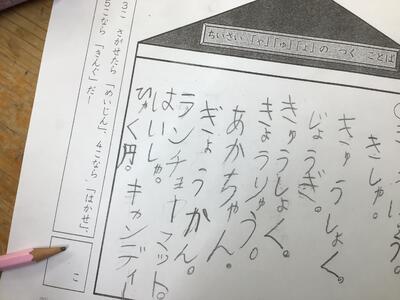 ちいさい「ゃ」「ゅ」「ょ」の つく ことば
きしゃ。
きゅうしょく。
じょうぎ。
きょうりゅう。
きゅうしょく。
あかちゃん。
ぎょうかん。
ランチョヤマット。
はいしゃ。
ひゃく円。キャンディー
3こ さがせたら「めいじん」、4こなら「はかせ」、
5こなら「きんぐ」だ!
こ